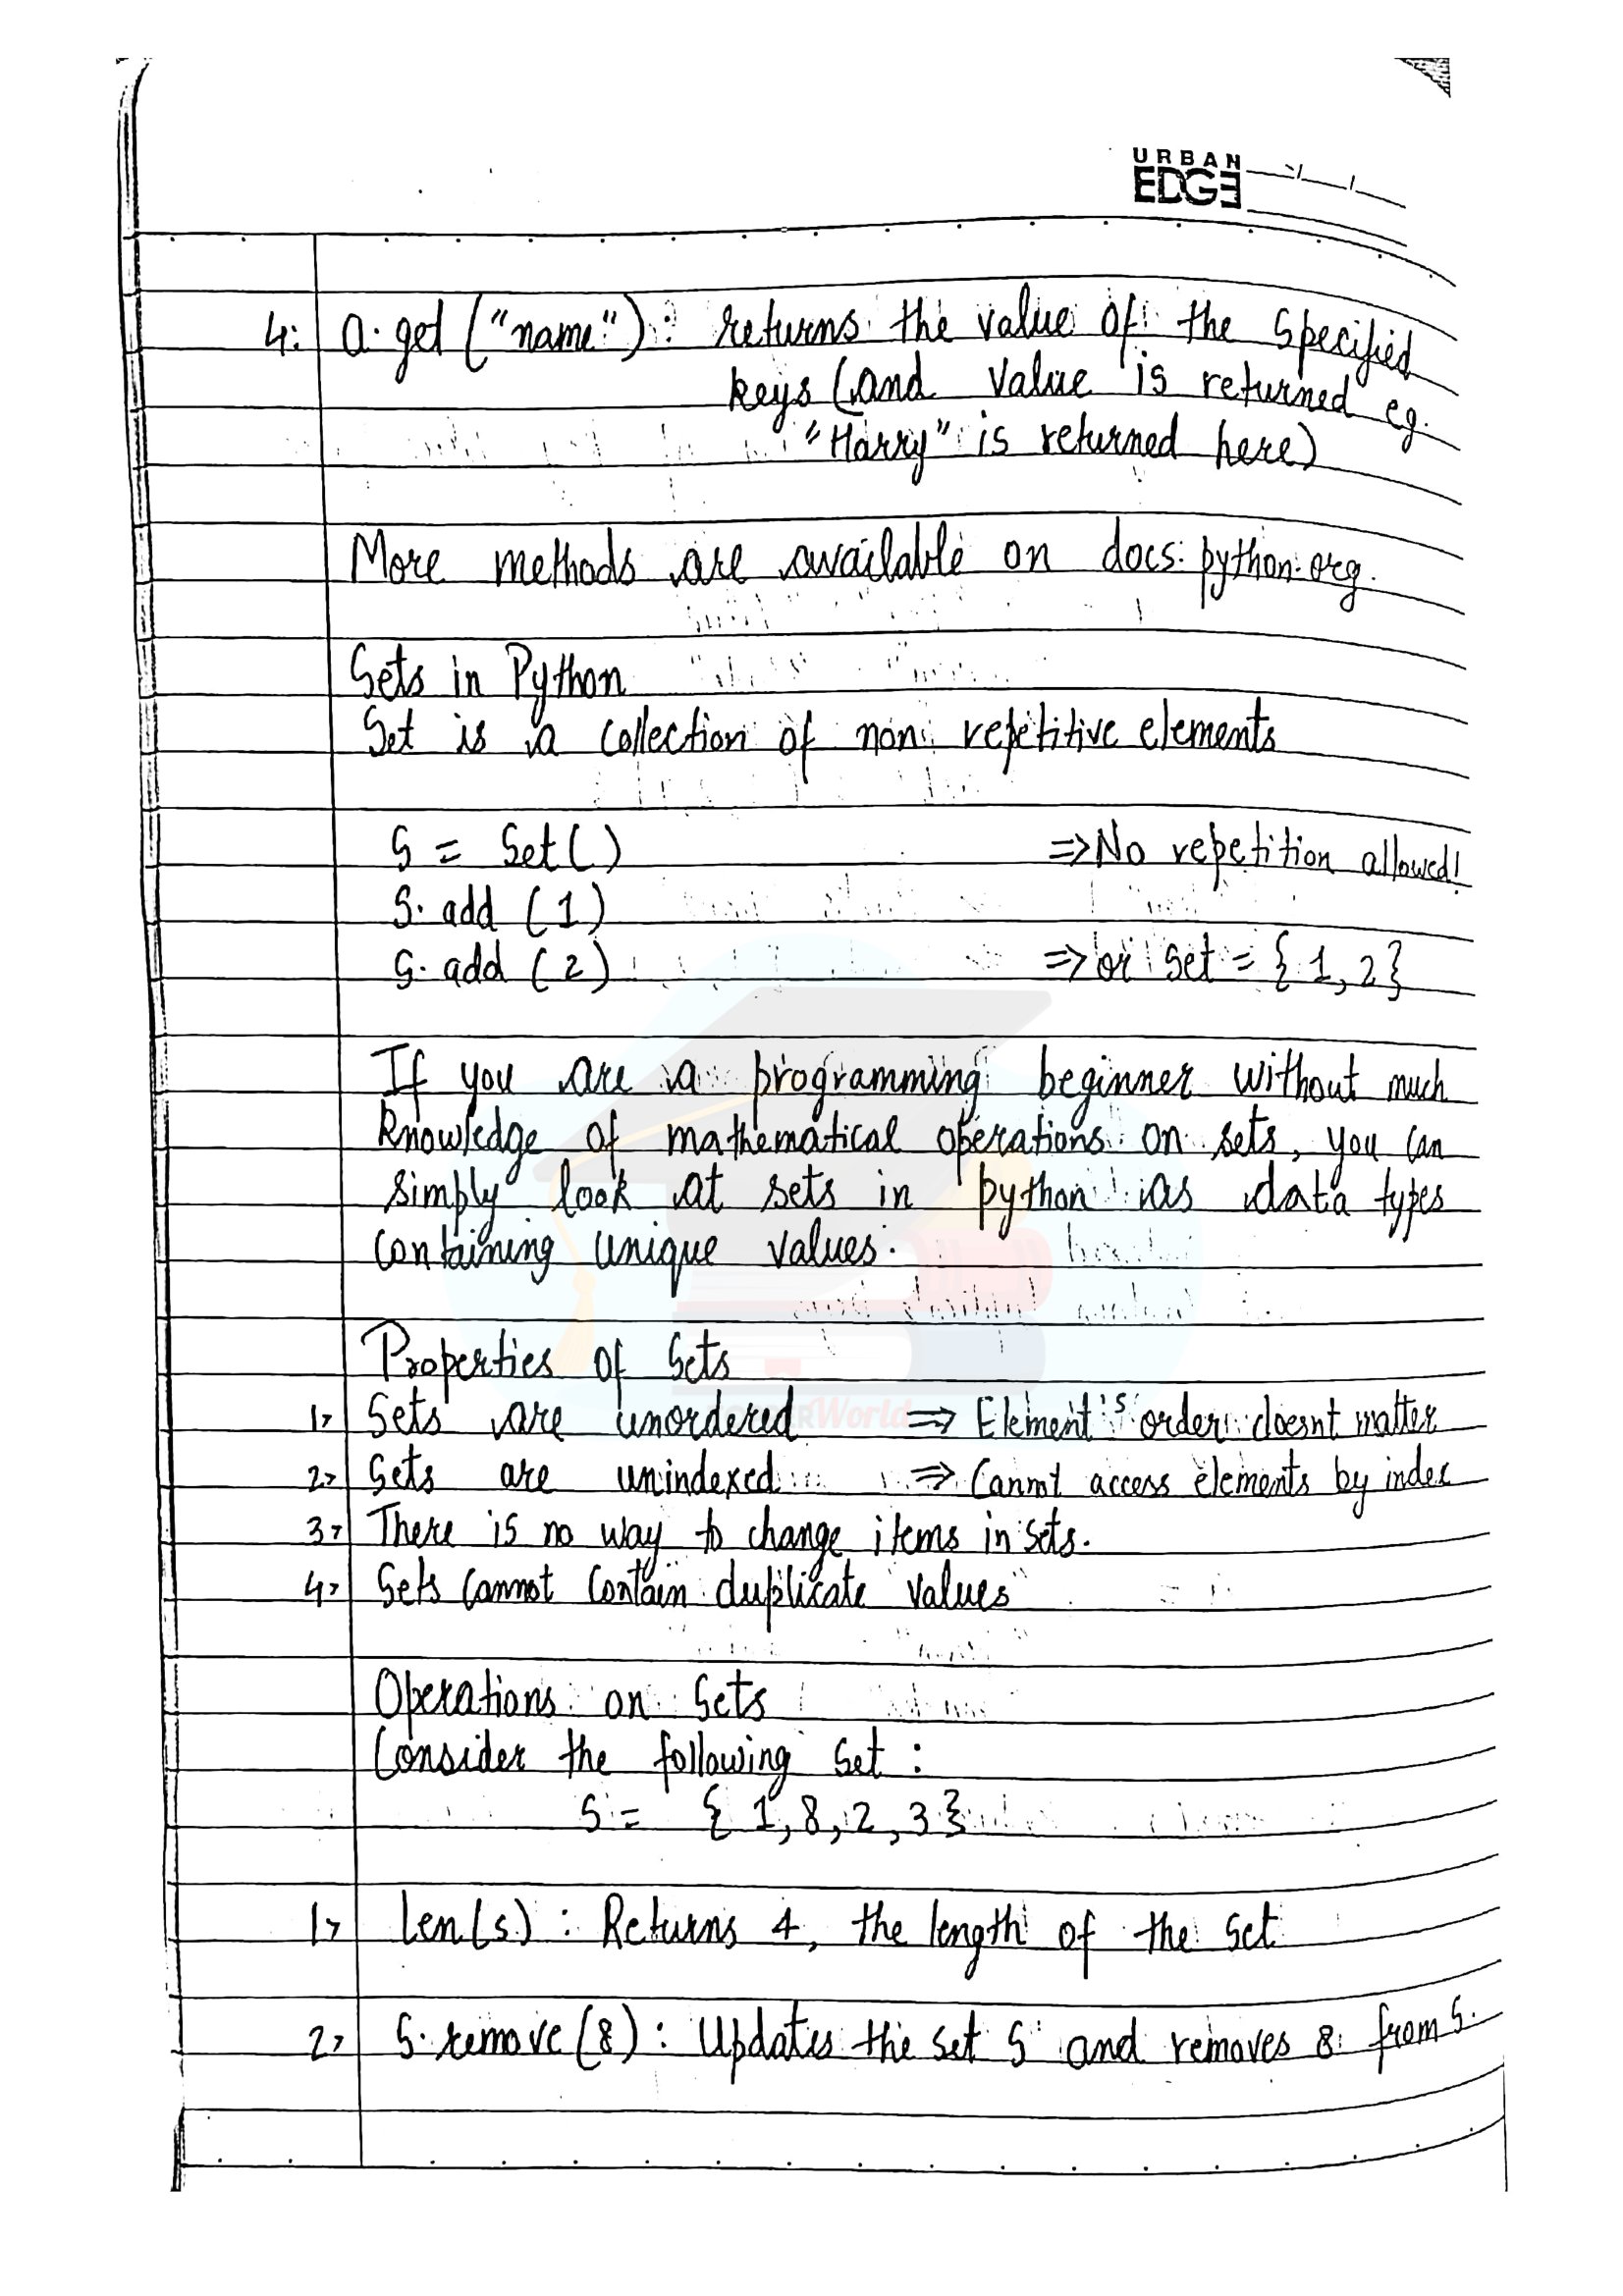 URBAN
EDGE
4: a.get ("name"): returns the value of the specified
keys (and value is returned eg.
"Harry" is returned here)
More methods are available on docs.python.org.
Sets in Python
Set is a collection of non repetitive elements
S = Set() ⇒ No repetition allowed!
S. add (1)
S. add (2) ⇒ or Set = {1,2}
If you are a programming beginner without much
knowledge of mathematical operations on sets, you can
simply look at sets in python as data types
containing unique values.
Properties of Sets
1> Sets are unordered ⇒ Element's order doesnt matter
2> Sets are unindexed ⇒ Cannot access elements by index
3> There is no way to change items in sets.
4> Sets cannot contain duplicate values
World
Operations on Sets
Consider the following Set :
S = {1,8,2,3}
1> len(s) : Returns 4, the length of the set
2> S.remove(8) : Updates the set S and removes 8 from S.